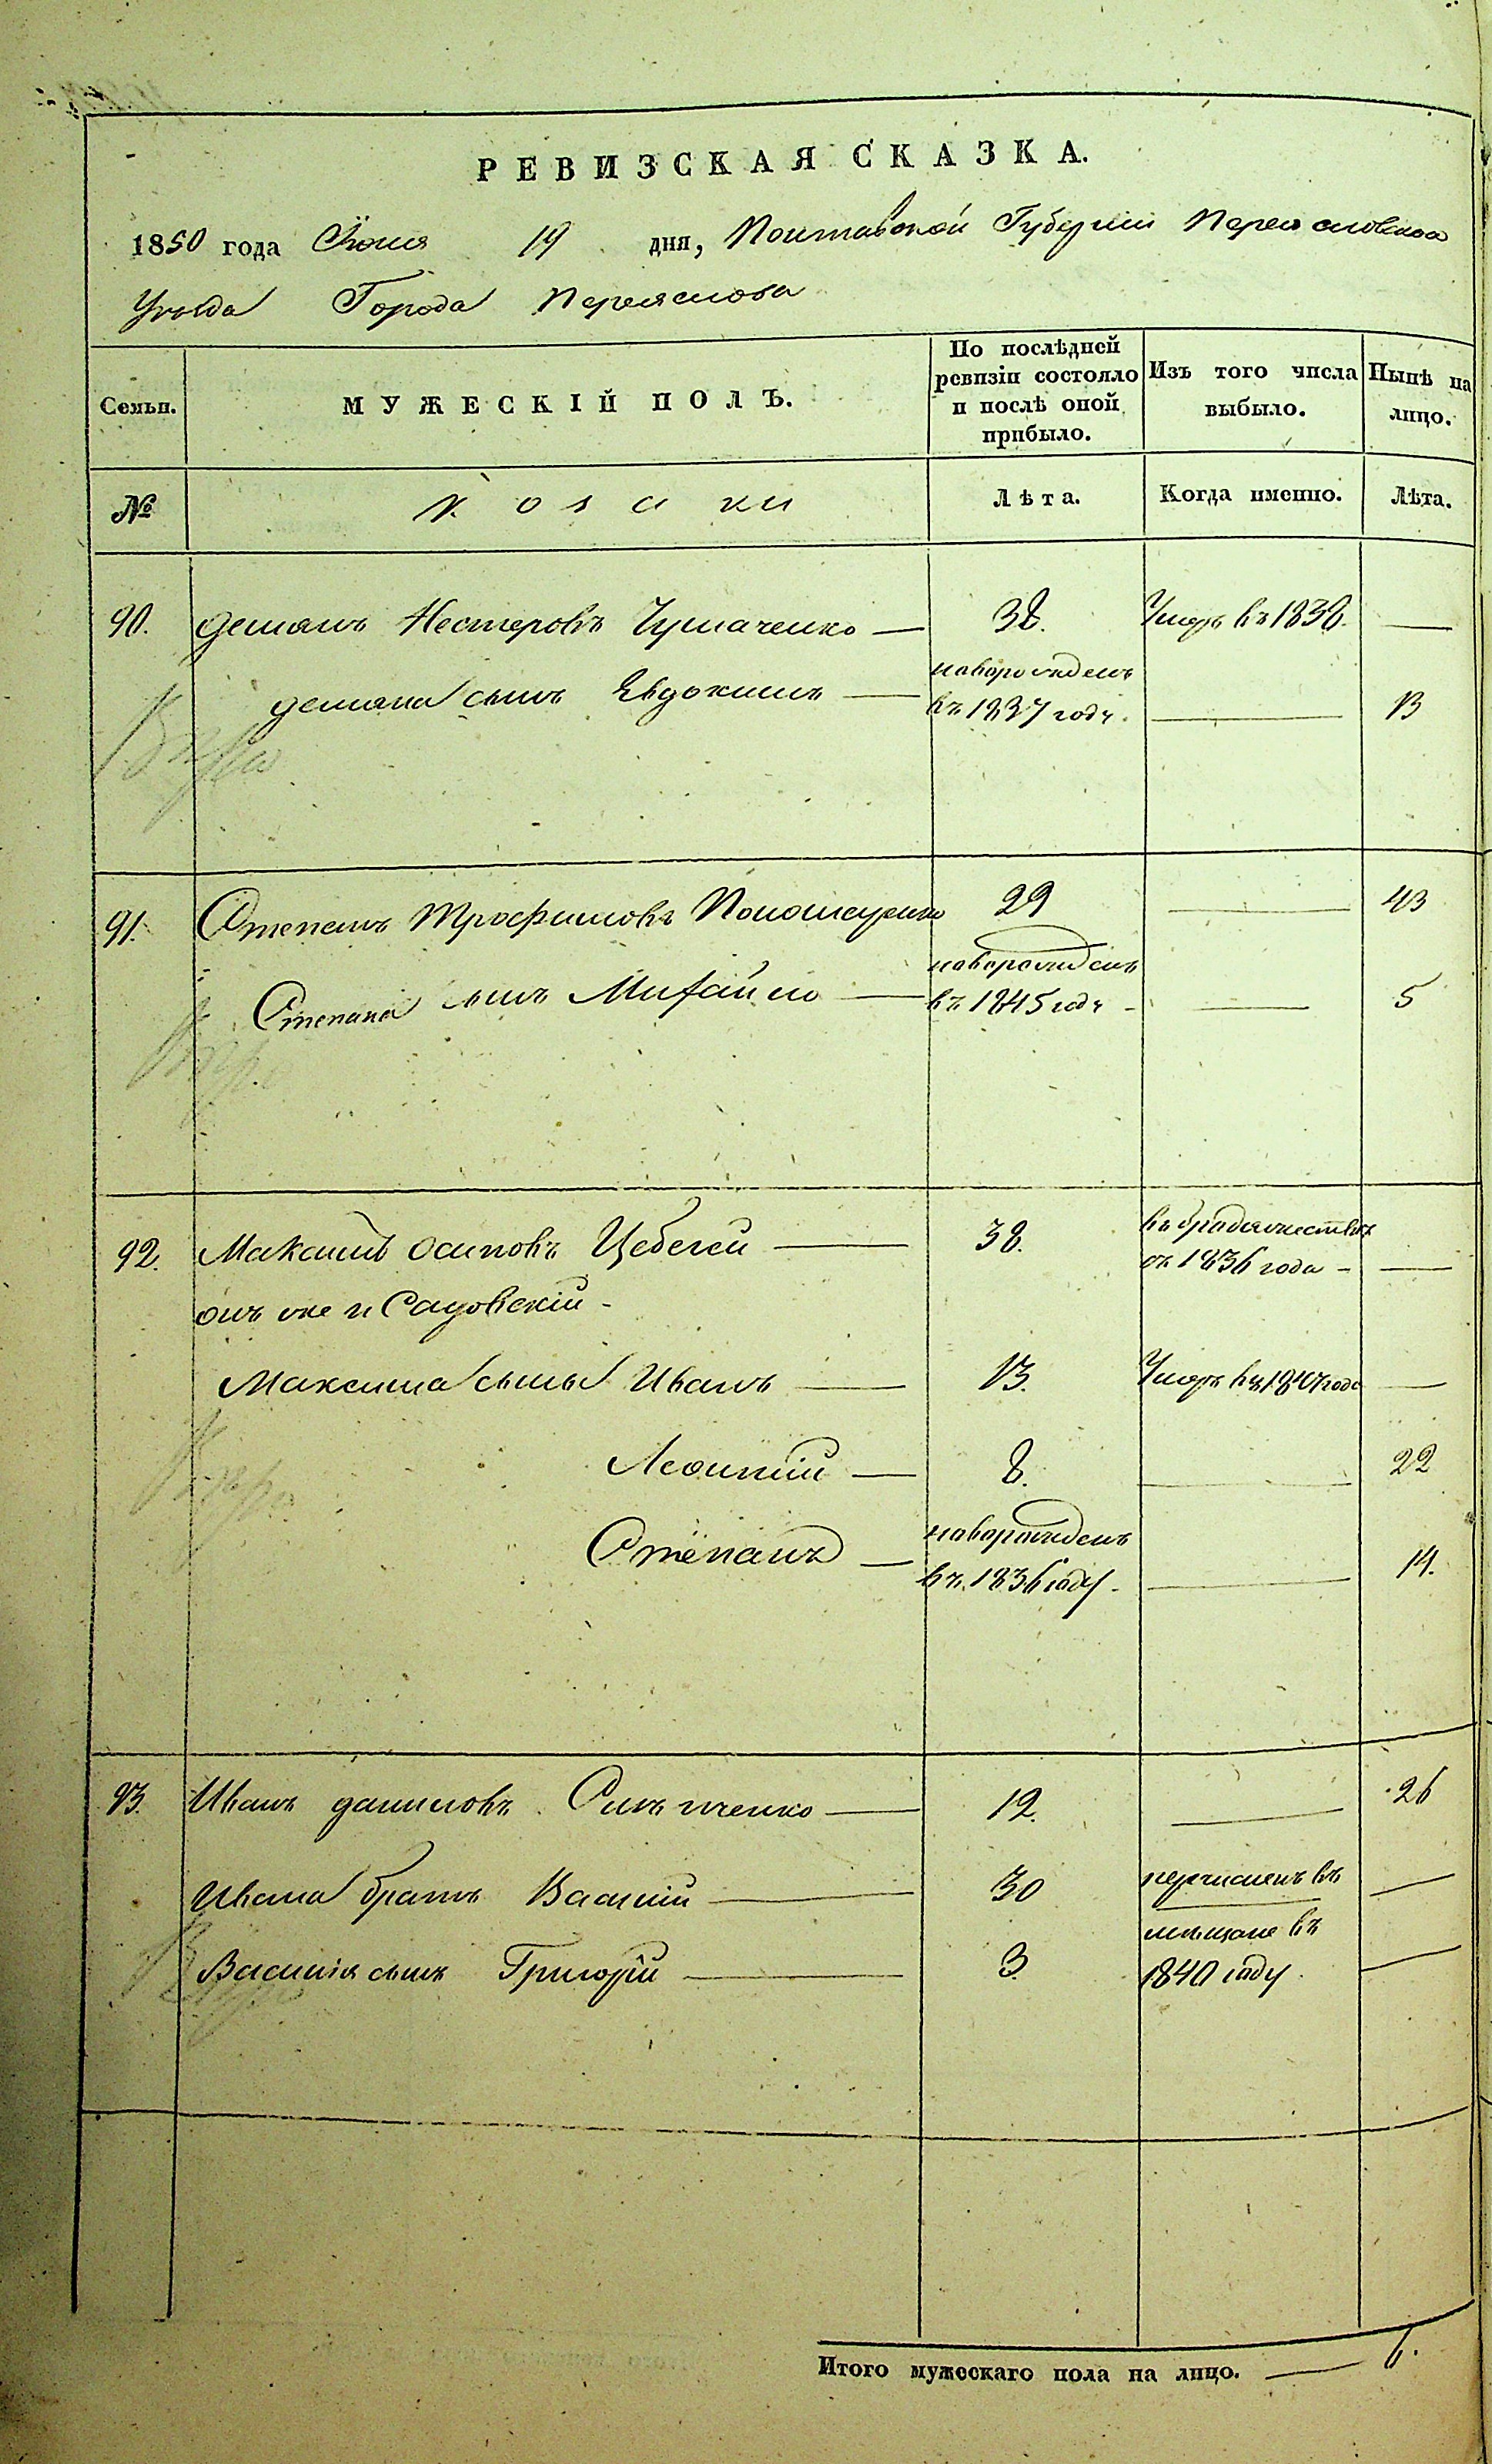 РЕВИЗСКАЯ СКАЗКА.
1850 года Июня 19 дня, Полтавской Губерніи Переясловского
Уѣзда Города Переяслова
Семьи.
МУЖЕСКІЙ ПОЛЪ.
По послѣдней ревизіи состояло и послѣ оной прибыло.
Изъ того числа выбыло.
Нынѣ на лицо.
№ Козаки Лѣта. Когда именно. Лѣта.
90. Демьянъ Нестеровъ Чумаченко — 38. Умеръ въ 1838. —
новорожденъ
Демяна сынъ Евдокимъ — въ 1837 году. — 13
91. Степанъ Трофимовъ 29 — 43
новорожденъ
Степана сынъ Михайло — въ 1845 году — 5
92. Максимъ Осиповъ Цебегей — 38. въ бродяжествѣ
съ 1836 года — —
онъ же и Садовскій -
Максима сыны Иванъ — 13. Умеръ въ 1847 годе —
Леонтий — 8. — 22
новорожденъ
Степанъ — въ 1836 году — 14.
93. Иванъ Даниловъ — 12. — 26
Ивана братъ Василий — 30 перчисленъ въ —
мѣщане въ
Василия сынъ Григорій — 3 1840 году —
Итого мужескаго пола на лицо. — 6.